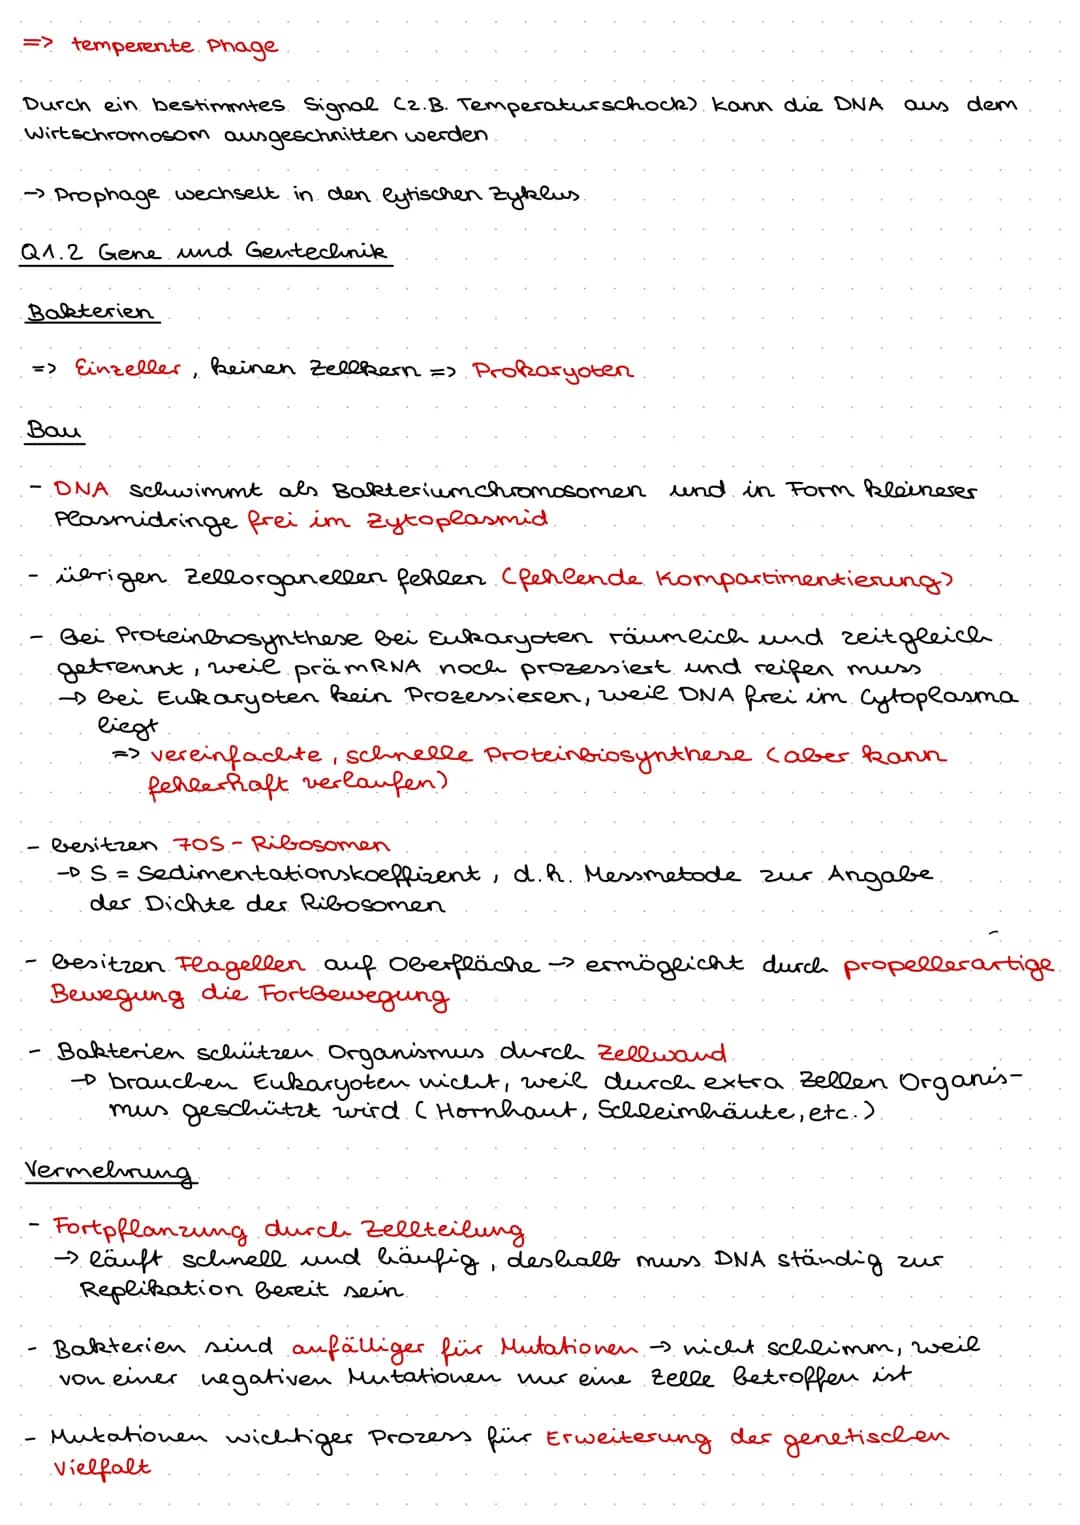 => temperente Phage
Durch ein bestimmtes Signal (z.B. Temperaturschock) kann die DNA aus dem
Wirtschromosom ausgeschnitten werden
-> Prophage wechselt in den lytischen Zyklus
Q1.2 Gene und Gentechnik
Bakterien
=> Einzeller, keinen Zellkern => Prokaryoten
Bau
- DNA schwimmt als Bakteriumchromosomen und in Form kleinerer
Plasmidringe frei im Zytoplasmid
- übrigen Zellorganellen fehlen (fehlende Kompartimentierung)
- Bei Proteinbrosynthese bei Eukaryoten räumlich und zeitgleich
getrennt, weil prämRNA noch prozessiert und reifen muss
-> bei Eukaryoten kein Prozessieren, weil DNA frei im Cytoplasma
liegt
=> vereinfachte, schnelle Proteinbiosynthese (aber kann
fehlerhaft verlaufen)
- besitzen 70S-Ribosomen
-> S = Sedimentationskoeffizent, d.h. Messmetode zur Angabe
der Dichte der Ribosomen
- besitzen Flagellen auf Oberfläche -> ermöglicht durch propellerartige
Bewegung die Fortbewegung
- Bakterien schützen Organismus durch Zellwand
-> brauchen Eukaryoten nicht, weil durch extra Zellen Organis-
mus geschützt wird (Hornhaut, Schleimhäute, etc.)
Vermehrung
- Fortpflanzung durch Zellteilung
-> läuft schnell und häufig, deshalb muss DNA ständig zur
Replikation bereit sein
- Bakterien sind anfälliger für Mutationen -> nicht schlimm, weil
von einer negativen Mutationen nur eine Zelle betroffen ist
- Mutationen wichtiger Prozess für Erweiterung der genetischen
Vielfalt